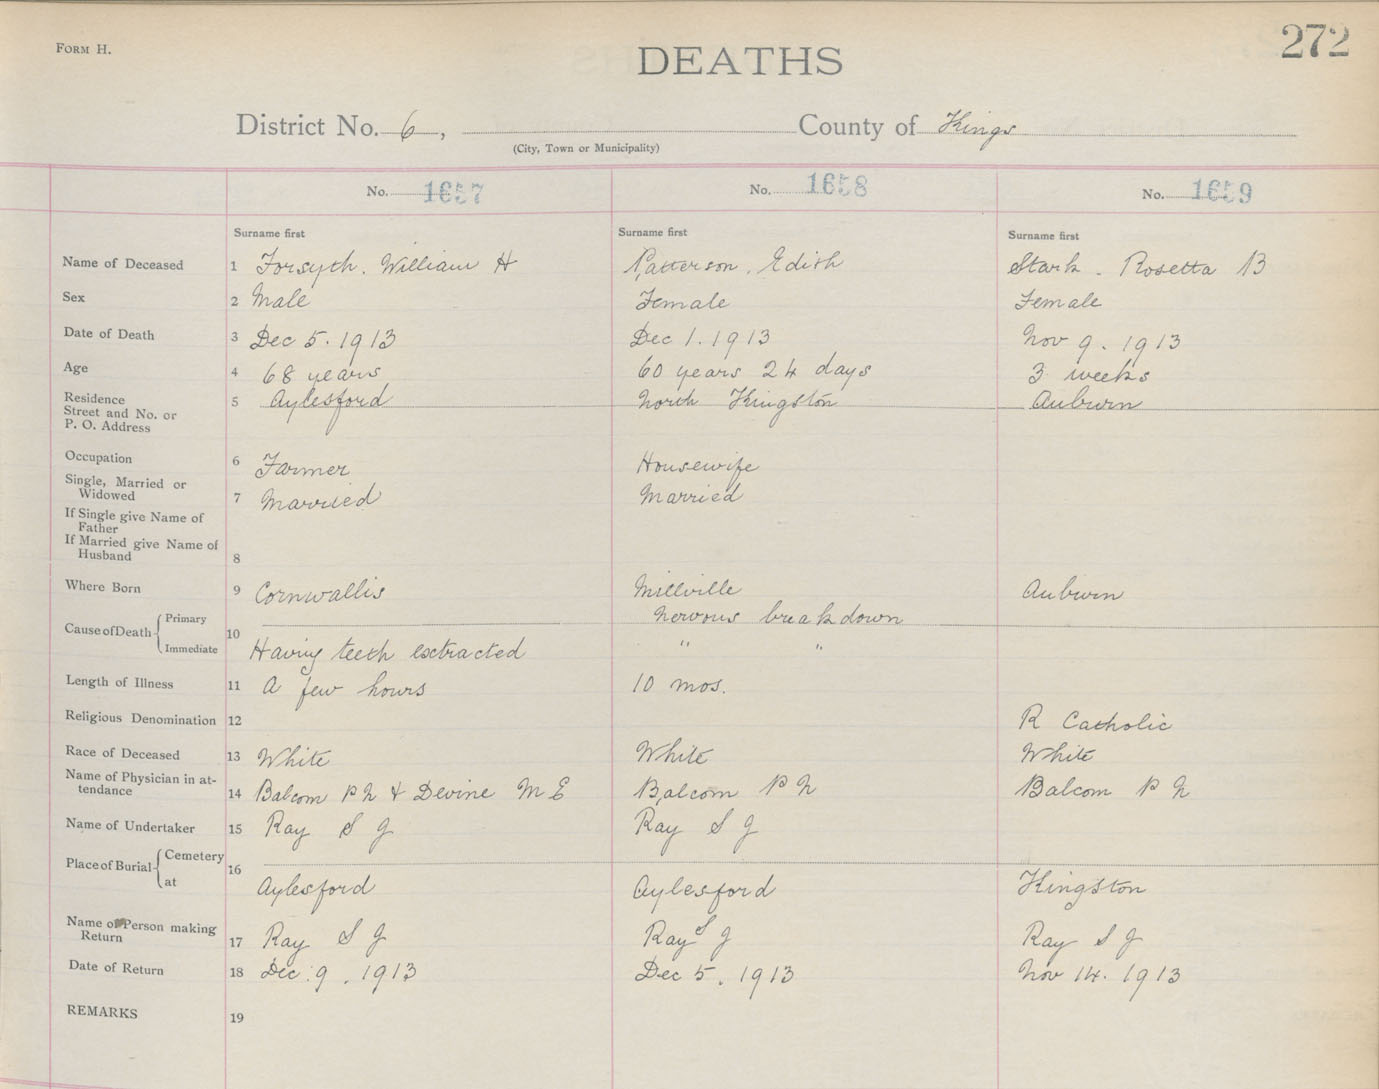 FORM H.
272
DEATHS
District No. 6, County of Kings
(City, Town or Municipality)
No. 1657 No. 1658 No. 1659
Surname first Surname first Surname first
Name of Deceased 1 Forsyth. William H Patterson. Edith Stark. Rosetta B
Sex 2 Male Female Female
Date of Death 3 Dec 5. 1913 Dec 1. 1913 Nov 9. 1913
Age 4 68 years 60 years 24 days 3 weeks
Residence
Street and No. or
P. O. Address 5 Aylesford North Kingston Auburn
Occupation 6 Farmer Housewife
Single, Married or
Widowed 7 Married Married
If Single give Name of
Father
If Married give Name of
Husband 8
Where Born 9 Cornwallis Millville Auburn
Cause of Death Primary 10 Nervous breakdown
Immediate Having teeth extracted " "
Length of Illness 11 A few hours 10 mos.
Religious Denomination 12 R Catholic
Race of Deceased 13 White White White
Name of Physician in at-
tendance 14 Balcom P N & Devine M E Balcom P N Balcom P N
Name of Undertaker 15 Ray S J Ray S J
Place of Burial Cemetery 16
at Aylesford Aylesford Kingston
Name of Person making
Return 17 Ray S J Ray S J Ray S J
Date of Return 18 Dec. 9. 1913 Dec 5. 1913 Nov 14. 1913
REMARKS 19